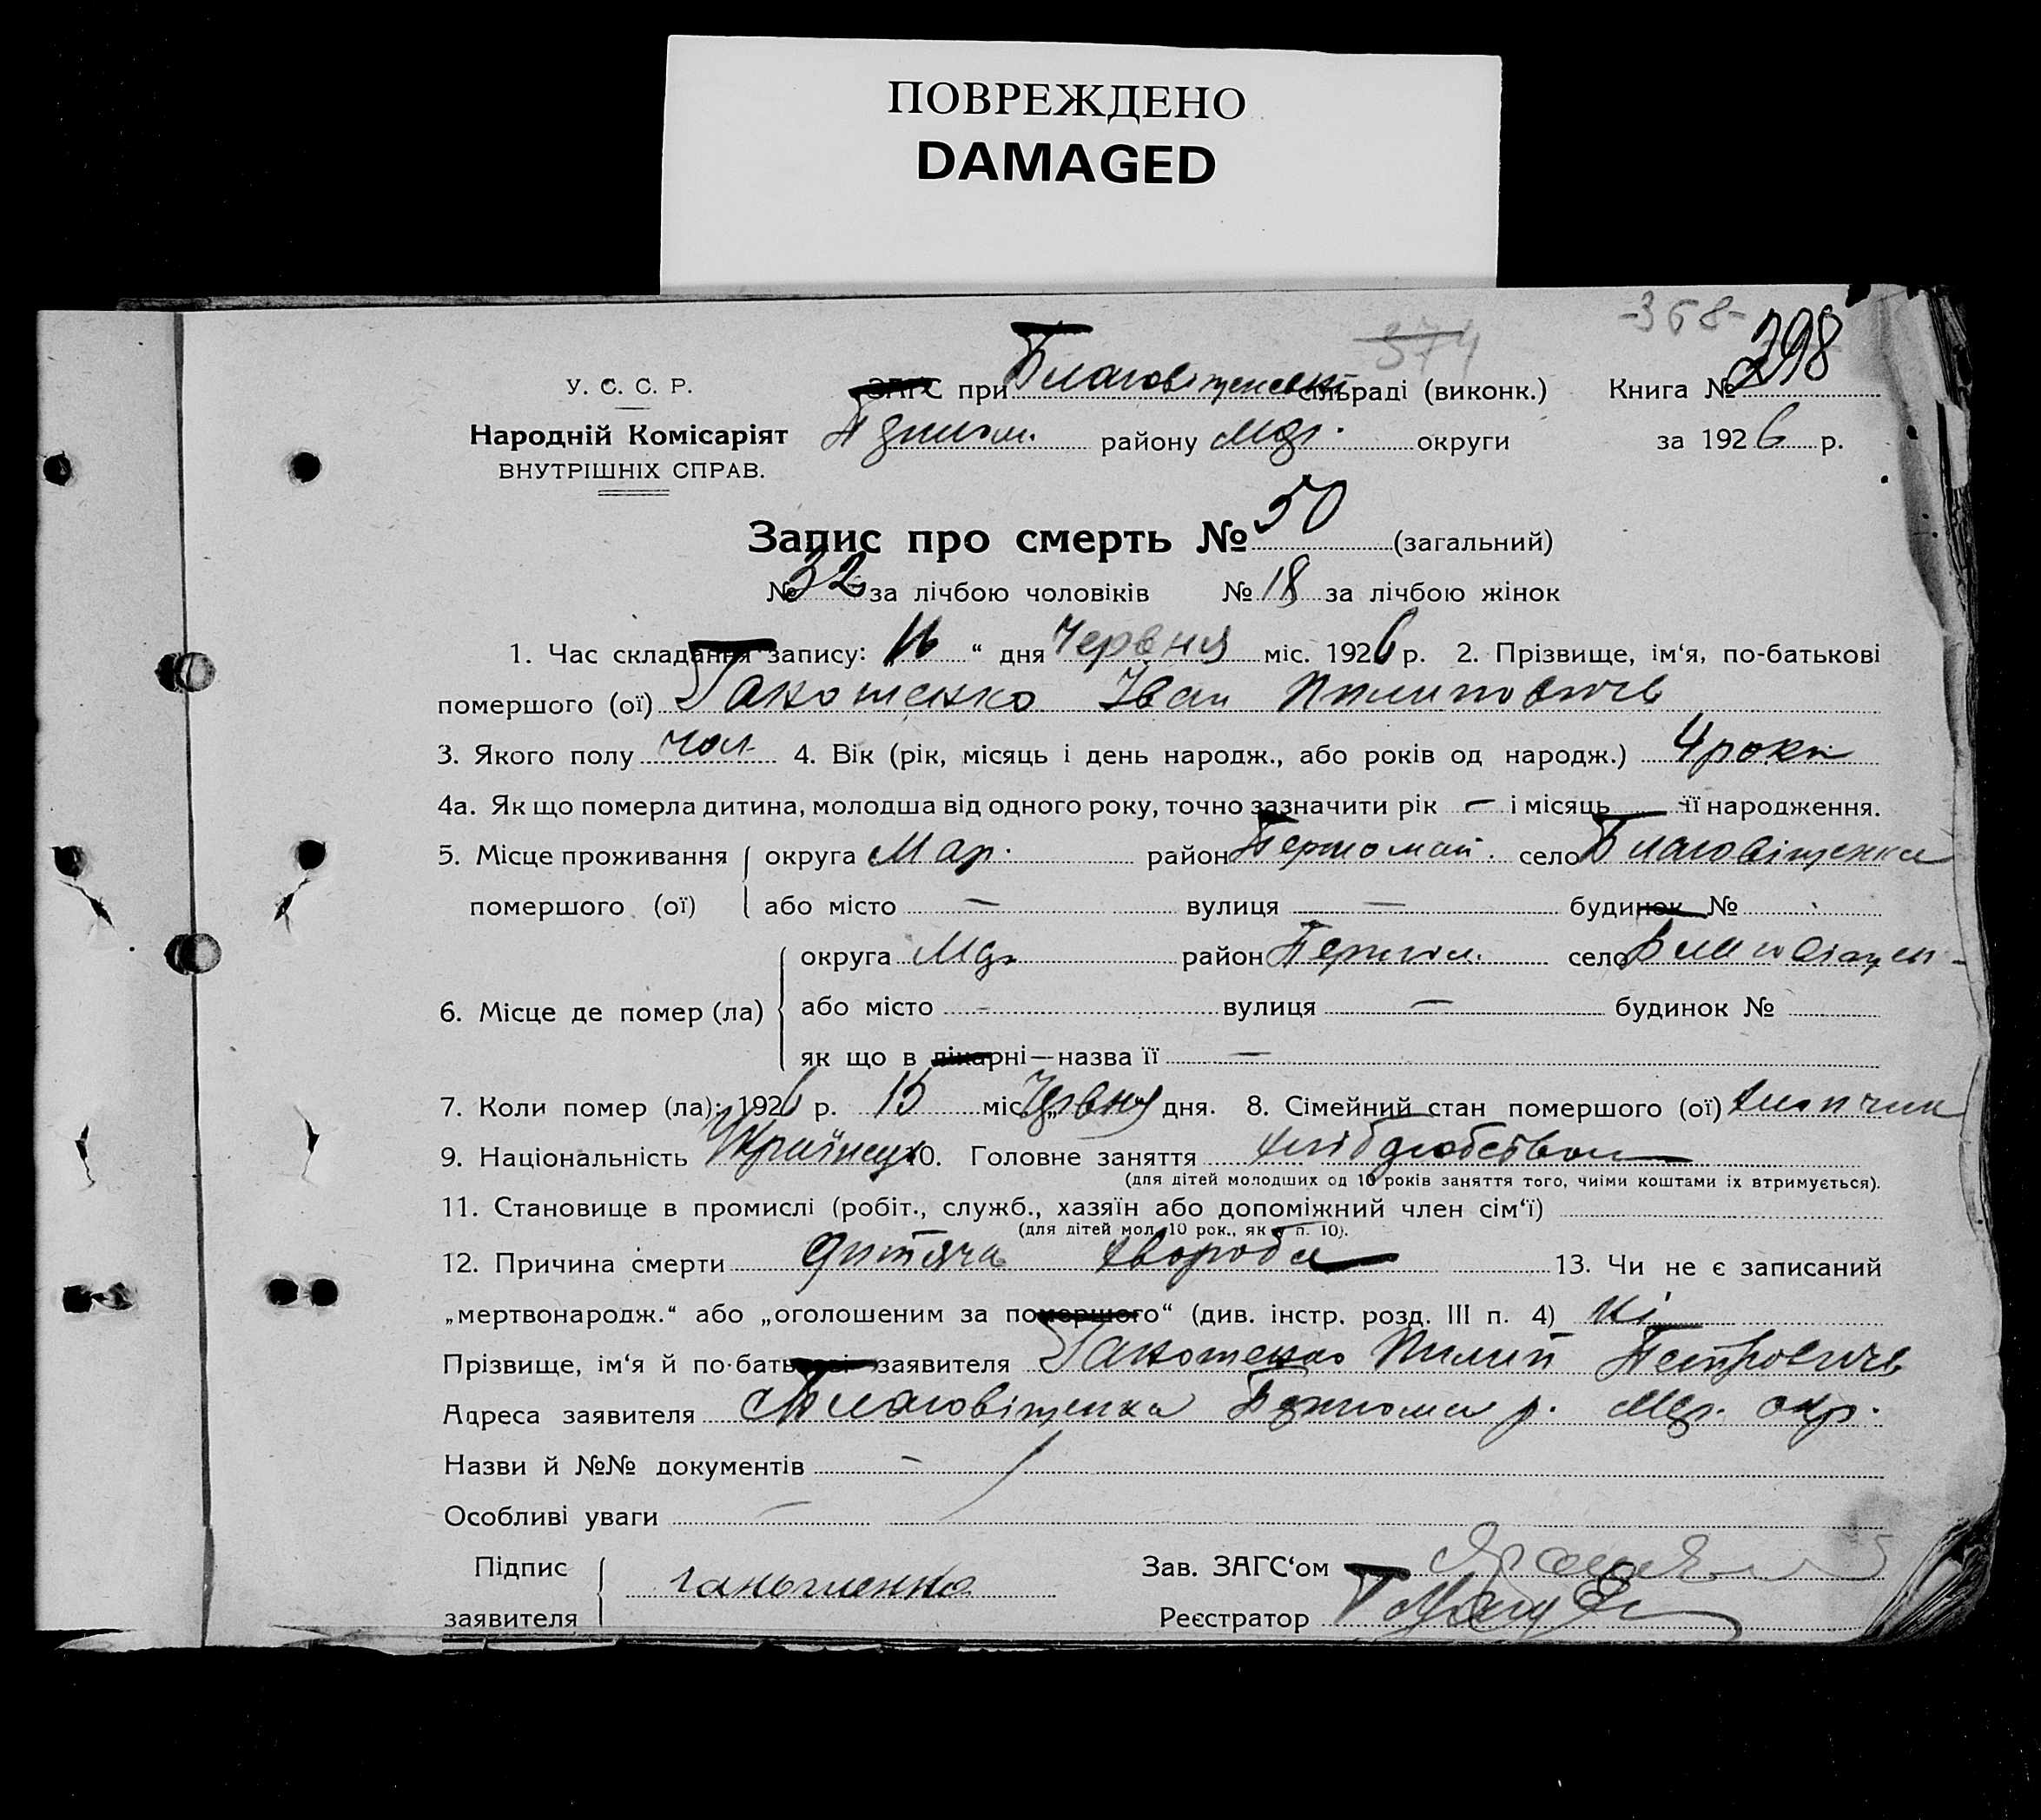 ПОВРЕЖДЕНО
DAMAGED
-368-
374
298
У. С. С. Р.
ЗАГС при Благовіщенські сільраді (виконк.) Книга №
Народній Комісаріят
району Мар. округи за 1926 р.
ВНУТРІШНІХ СПРАВ.
Запис про смерть № 50 (загальний)
№ 32 за лічбою чоловіків № 18 за лічбою жінок
1. Час складання запису: 16 “ дня Червня міс. 1926 р. 2. Прізвище, ім‘я, по-батькові
помершого (ої) Ганотенко Іван Пилиповичь
3. Якого полу чол 4. Вік (рік, місяць і день народж., або років од народж.) 4 роки
4а. Як що померла дитина, молодша від одного року, точно зазначити рік — і місяць — її народження.
5. Місце проживання округа Мар. район Першомай. село Благовіщенка
помершого (ої) або місто — вулиця — будинок №
округа Мар район село Благовіщен-
6. Місце де помер (ла) або місто - вулиця — будинок №
як що в лікарні—назва її —
7. Коли помер (ла): 1926 р. 15 міс. „Червня дня. 8. Сімейний стан помершого (ої) хлопчик
9. Національність Українець 10. Головне заняття хліборобством
(для дітей молодших од 10 років заняття того, чиїми коштами їх втримується).
11. Становище в промислі (робіт., служб., хазяїн або допоміжний член сім‘ї)
(для дітей мол. 10 рок., як в п. 10).
12. Причина смерти дитяча хвороба 13. Чи не є записаний
„мертвонародж.“ або „оголошеним за помершого“ (див. інстр. розд. III п. 4) ні
Прізвище, ім‘я й по-батькові заявителя Ганотенко Пилип Петровичь
Адреса заявителя с Благовіщенка р. Мар. окр.
Назви й №№ документів -
Особливі уваги —
Підпис Зав. ЗАГС‘ом
заявителя Реєстратор